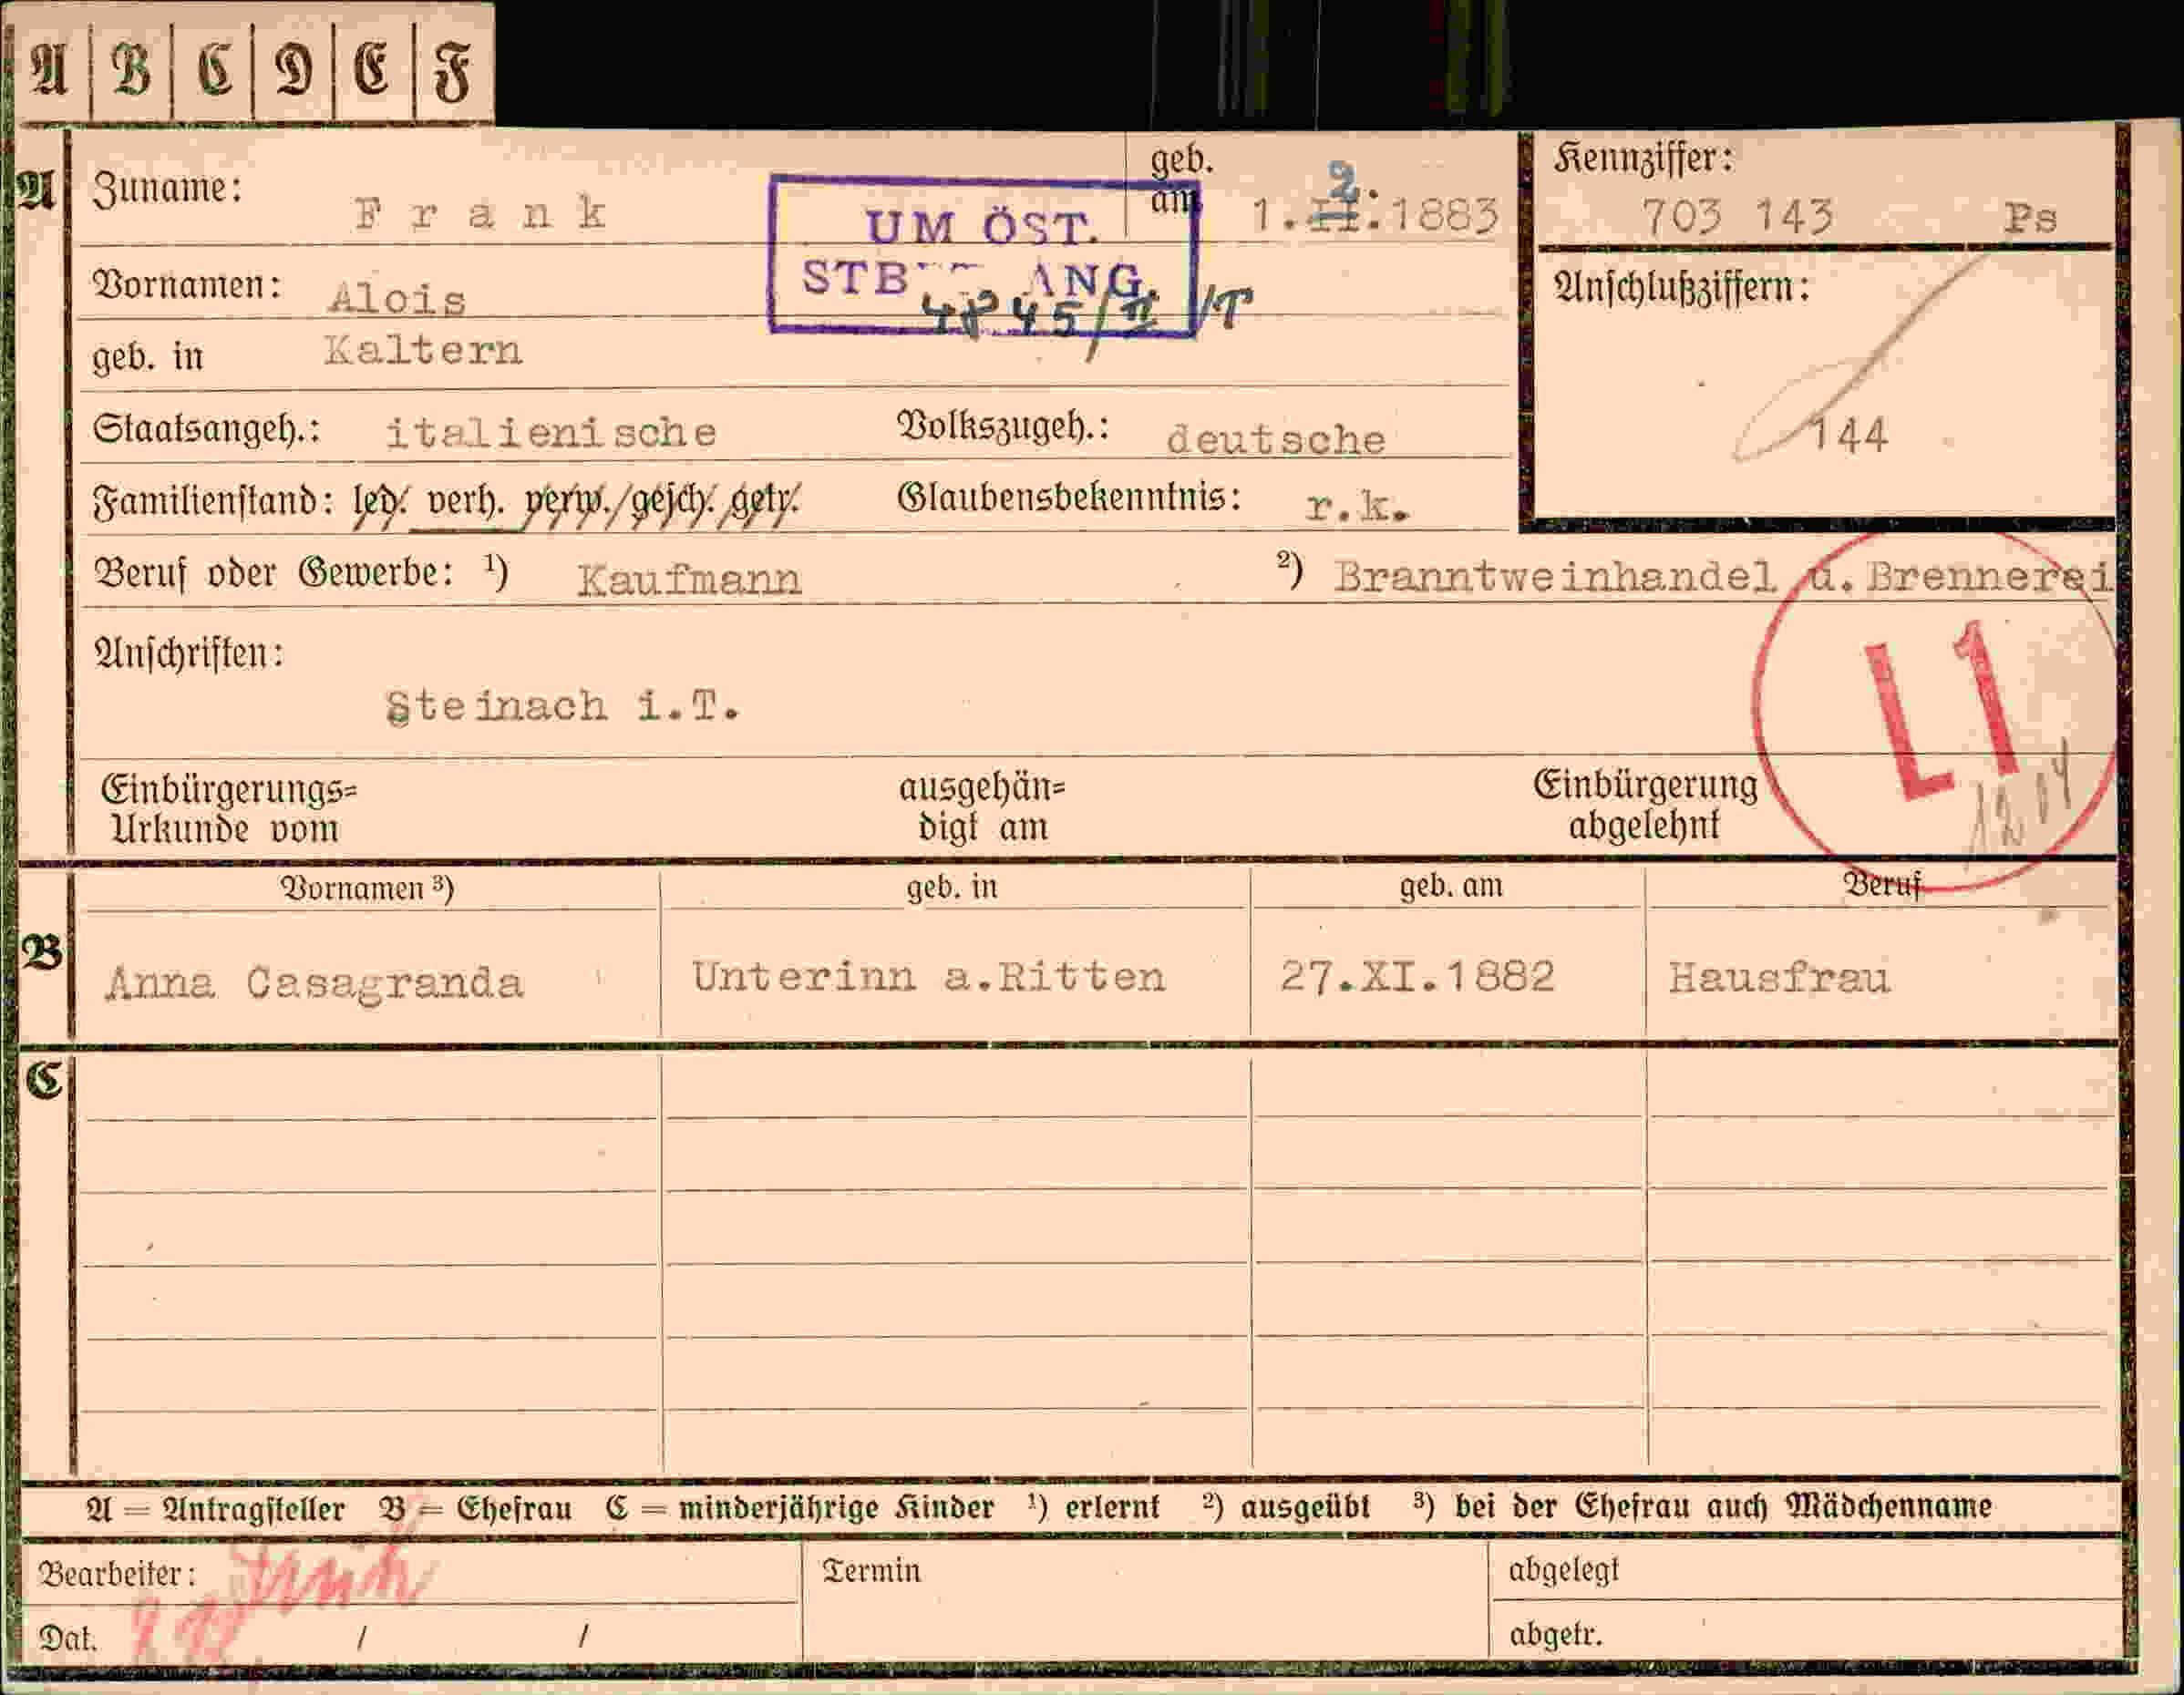 A B C D E F
A
Zuname: Frank
geb. am 1.2.1883
UM ÖST.
STB ANG.
4845/II/T
Kennziffer:
703 143 Ps
Vornamen: Alois
Anschlußziffern:
144
geb. in Kaltern
Staatsangeh.: italienische Volkszugeh.: deutsche
Familienstand: led. verh. verw./gesch. getr. Glaubensbekenntnis: r.k.
Beruf oder Gewerbe: ¹) Kaufmann ²) Branntweinhandel u. Brennerei
Anschriften:
Steinach i.T.
L1
Einbürgerungs= ausgehän= Einbürgerung
Urkunde vom digt am abgelehnt
Vornamen ³) geb. in geb. am Beruf
B
Anna Casagranda Unterinn a.Ritten 27.XI.1882 Hausfrau
C
A = Antragsteller B = Ehefrau C = minderjährige Kinder ¹) erlernt ²) ausgeübt ³) bei der Ehefrau auch Mädchenname
Bearbeiter: Termin abgelegt
Dat. / / abgetr.